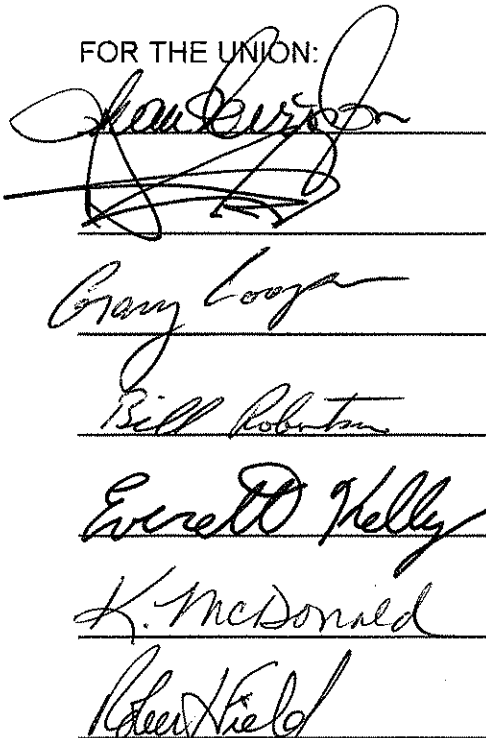 FOR THE UNION:
Gary Cooper
Bill Robertson
Everett Kelly
K. McDonald
Robert Field